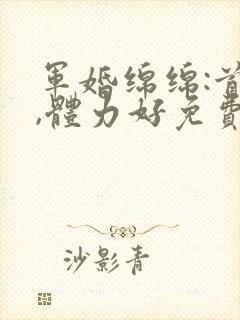 軍婚綿綿:首
,體力好免費
沙影青